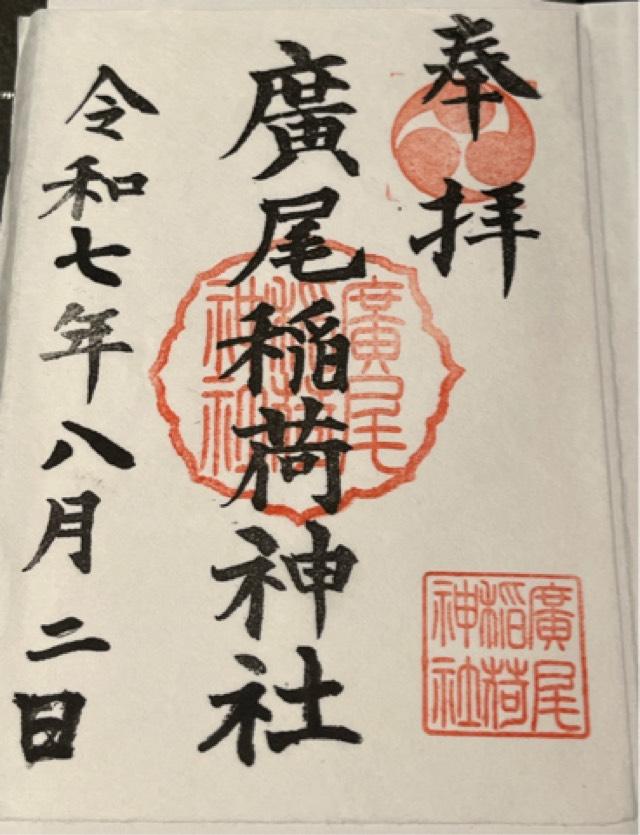 奉拝
廣尾稲荷神社
令和七年八月二日
廣尾
稲荷
神社
廣尾
稲荷
神社